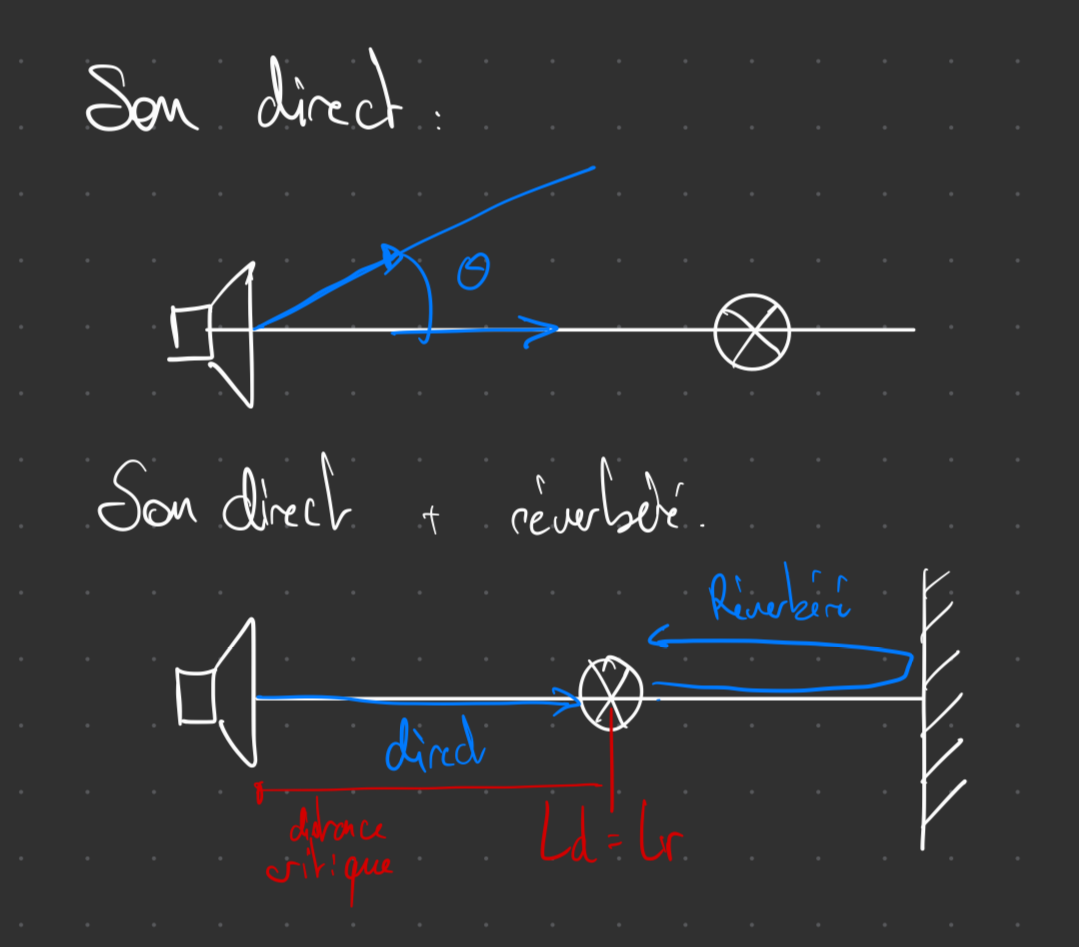 Son direct :
θ
Son direct + réverbéré.
Réverbéré
direct
distance
critique
Ld = Lr